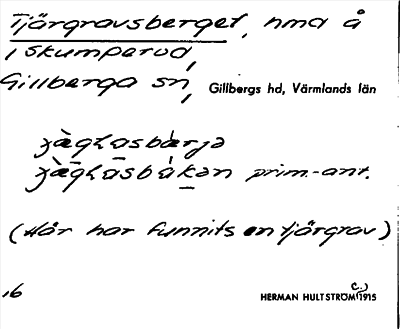 Tjärgravsberget, hmd å
i Skumperud,
Gillberga sn, Gillbergs hd, Värmlands län
prim.-ant.
(Här har funnits en tjärgrav)
16 HERMAN HULTSTRÖM (C.) 1915